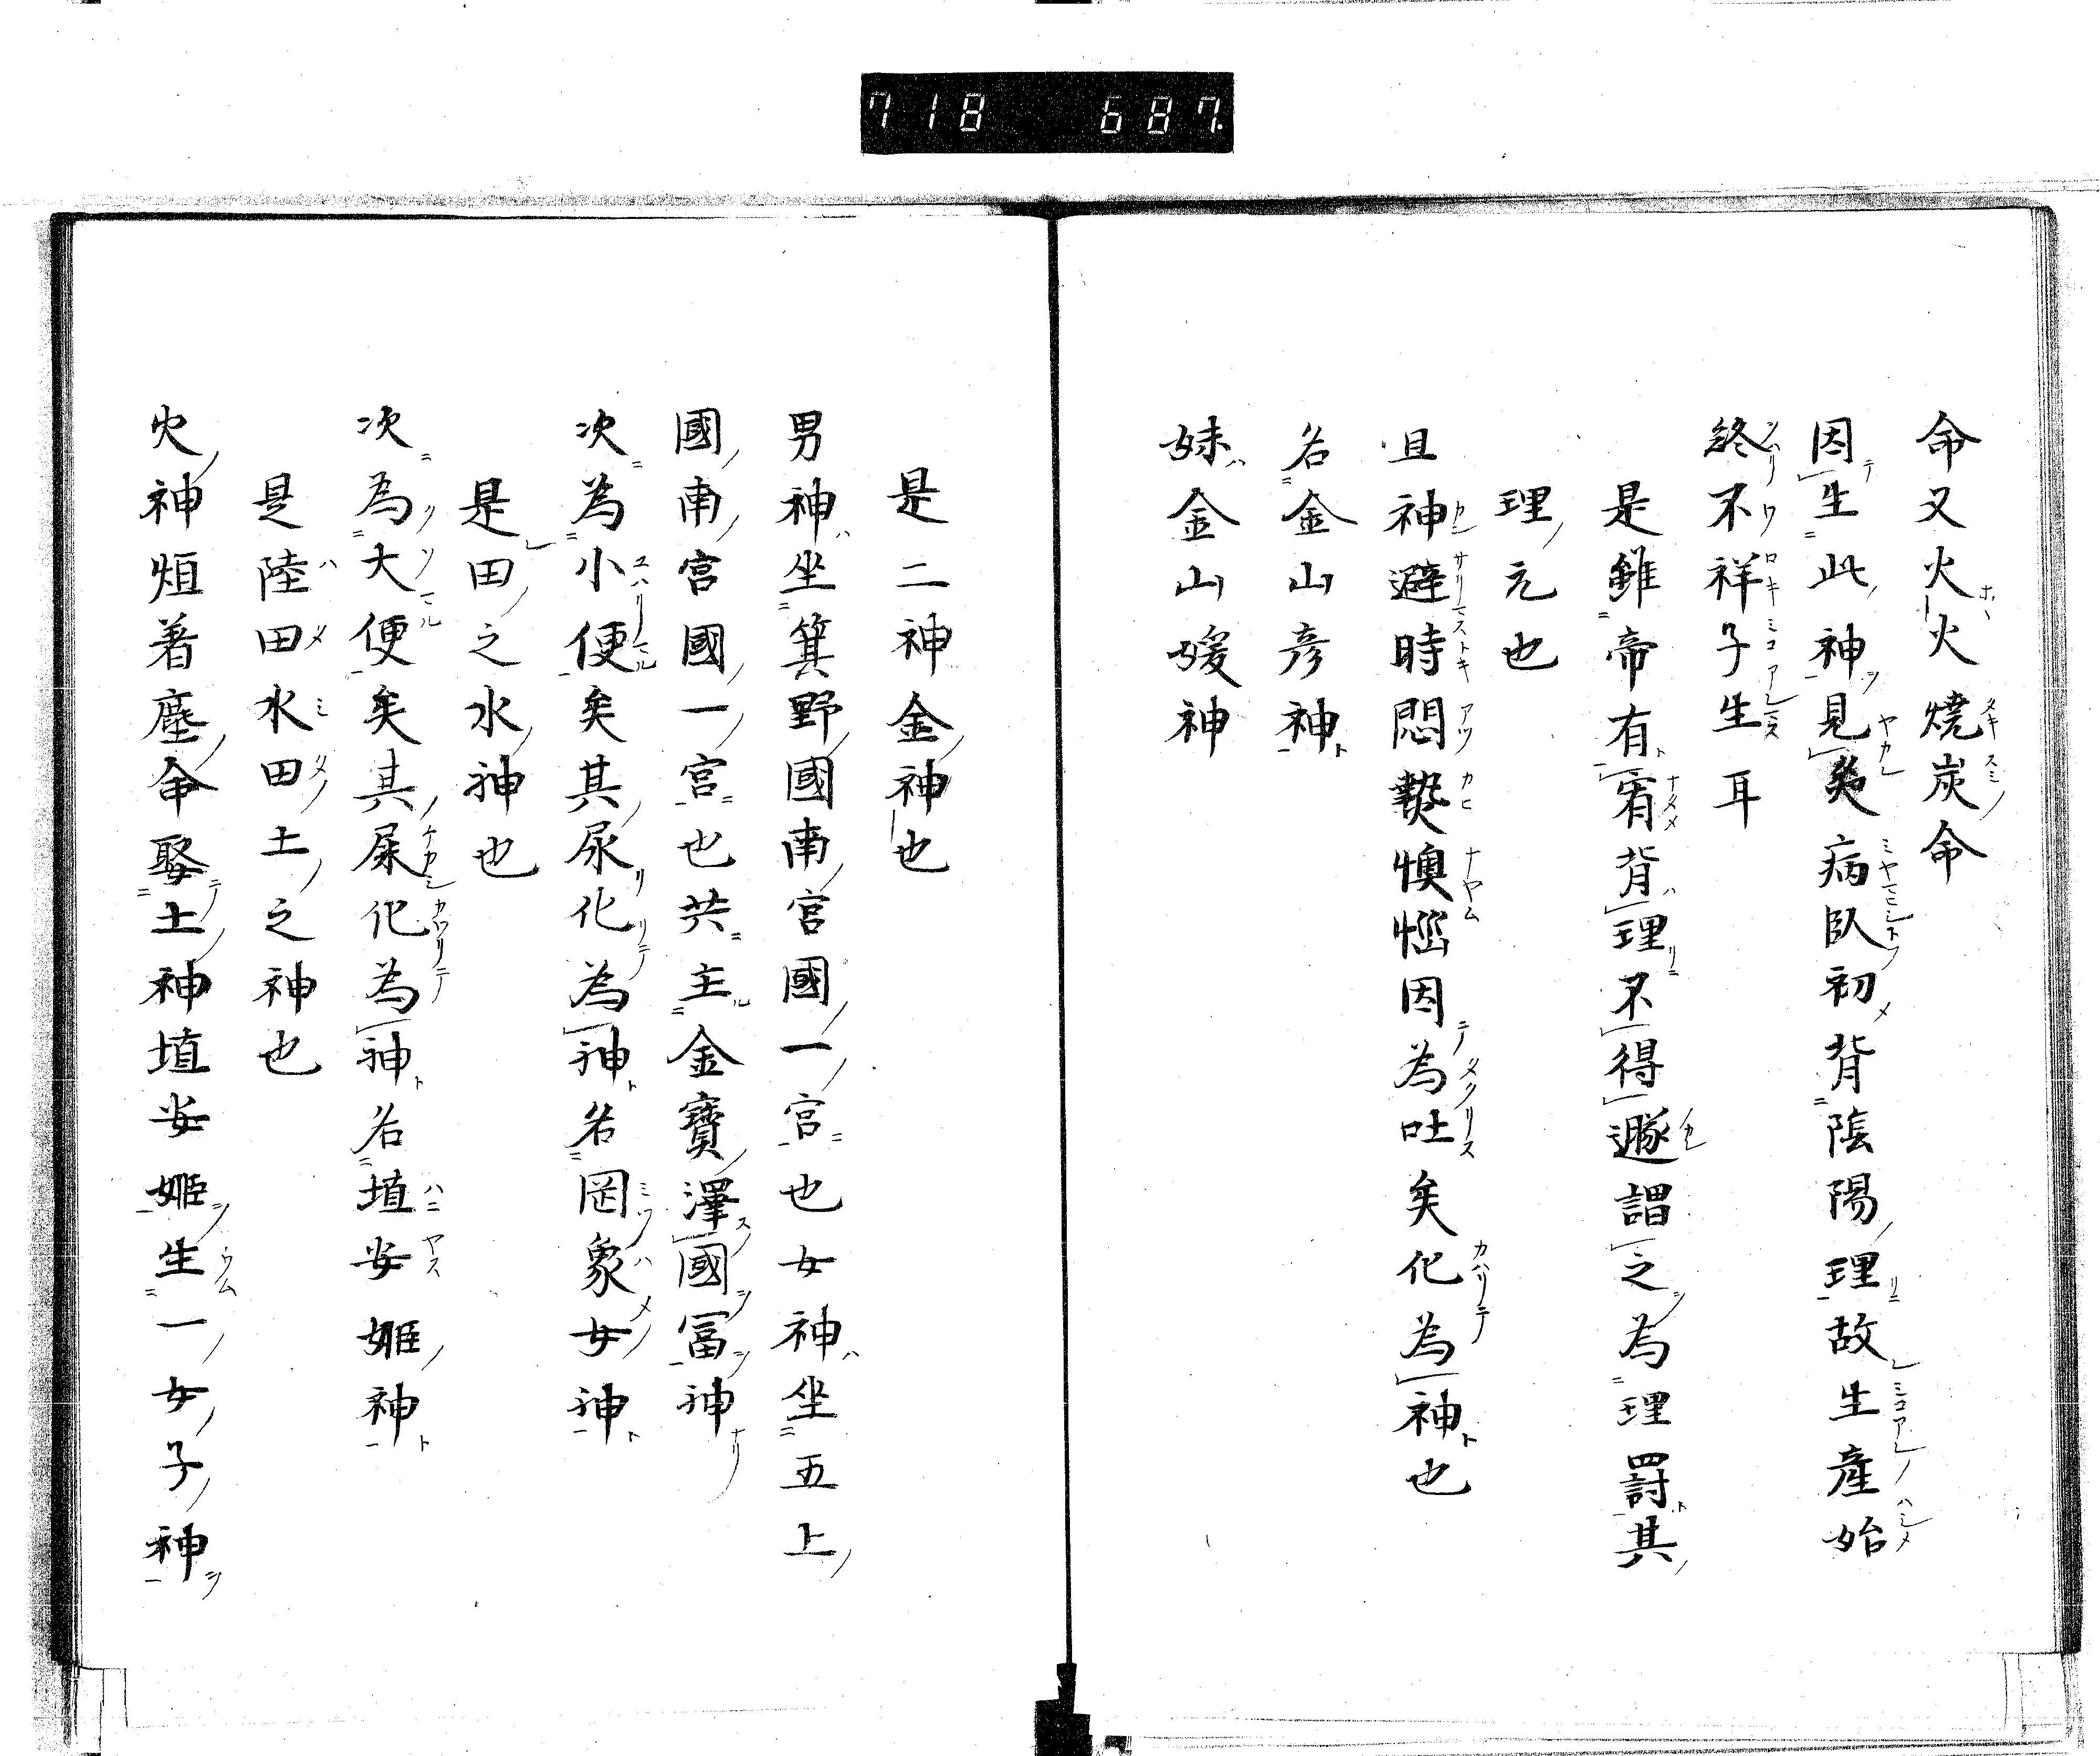 718 687
命又火火燒炭命
因生此神見夷病臥初背陰陽理故生產始
終不祥子生耳
是雖帝有宥背理不得遯謂之為理罸其
理元也
且神避時悶𤍠懊惱因為吐矣化為神也
名金山彥神
妹金山媛神
是二神金神也
男神坐箕野國南宮國一宮也女神坐五上
國南宮國一宮也共主金寶澤國冨神
次為小便矣其尿化為神名罔象女神
是田之水神也
次為大便矣其屎化為神名埴安姬神
是陸田水田土之神也
火神烜着塵命娶土神埴安姬生一女子神